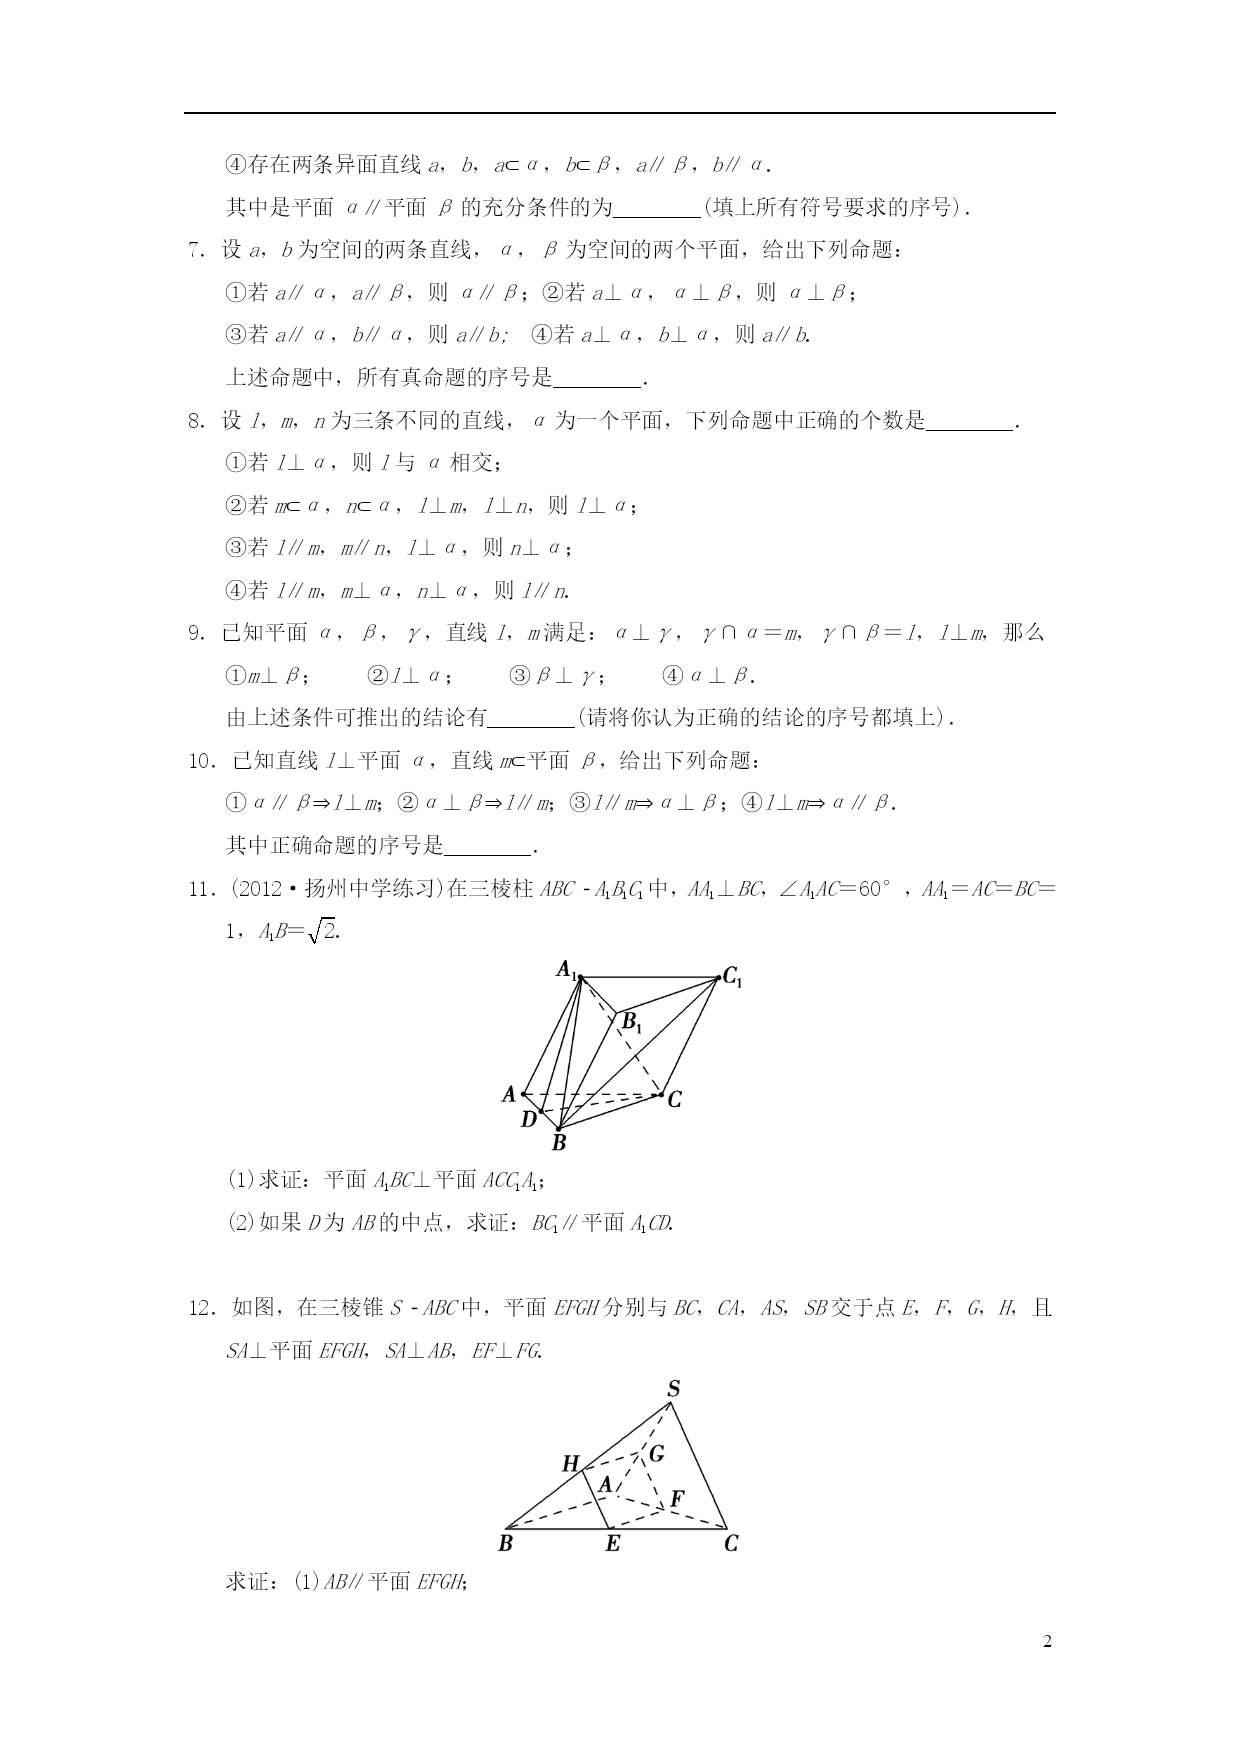 ④存在两条异面直线a，b，a⊂α，b⊂β，a∥β，b∥α.
其中是平面α∥平面β的充分条件的为________(填上所有符号要求的序号)．
7．设a，b为空间的两条直线，α，β为空间的两个平面，给出下列命题：
①若a∥α，a∥β，则α∥β；②若a⊥α，α⊥β，则α⊥β；
③若a∥α，b∥α，则a∥b; ④若a⊥α，b⊥α，则a∥b.
上述命题中，所有真命题的序号是________．
8．设l，m，n为三条不同的直线，α为一个平面，下列命题中正确的个数是________．
①若l⊥α，则l与α相交；
②若m⊂α，n⊂α，l⊥m，l⊥n，则l⊥α；
③若l∥m，m∥n，l⊥α，则n⊥α；
④若l∥m，m⊥α，n⊥α，则l∥n.
9．已知平面α，β，γ，直线l，m满足：α⊥γ，γ∩α＝m，γ∩β＝l，l⊥m，那么
①m⊥β； ②l⊥α； ③β⊥γ； ④α⊥β.
由上述条件可推出的结论有________(请将你认为正确的结论的序号都填上)．
10．已知直线l⊥平面α，直线m⊂平面β，给出下列命题：
①α∥β⇒l⊥m；②α⊥β⇒l∥m；③l∥m⇒α⊥β；④l⊥m⇒α∥β.
其中正确命题的序号是________．
11．(2012·扬州中学练习)在三棱柱ABC－A₁B₁C₁中，AA₁⊥BC，∠A₁AC＝60°，AA₁＝AC＝BC＝
1，A₁B＝√2.
A₁
C₁
B₁
A
C
D
B
(1)求证：平面A₁BC⊥平面ACC₁A₁；
(2)如果D为AB的中点，求证：BC₁∥平面A₁CD.
12．如图，在三棱锥S－ABC中，平面EFGH分别与BC，CA，AS，SB交于点E，F，G，H，且
SA⊥平面EFGH，SA⊥AB，EF⊥FG.
S
G
H
A
F
B
E
C
求证：(1)AB∥平面EFGH；
2